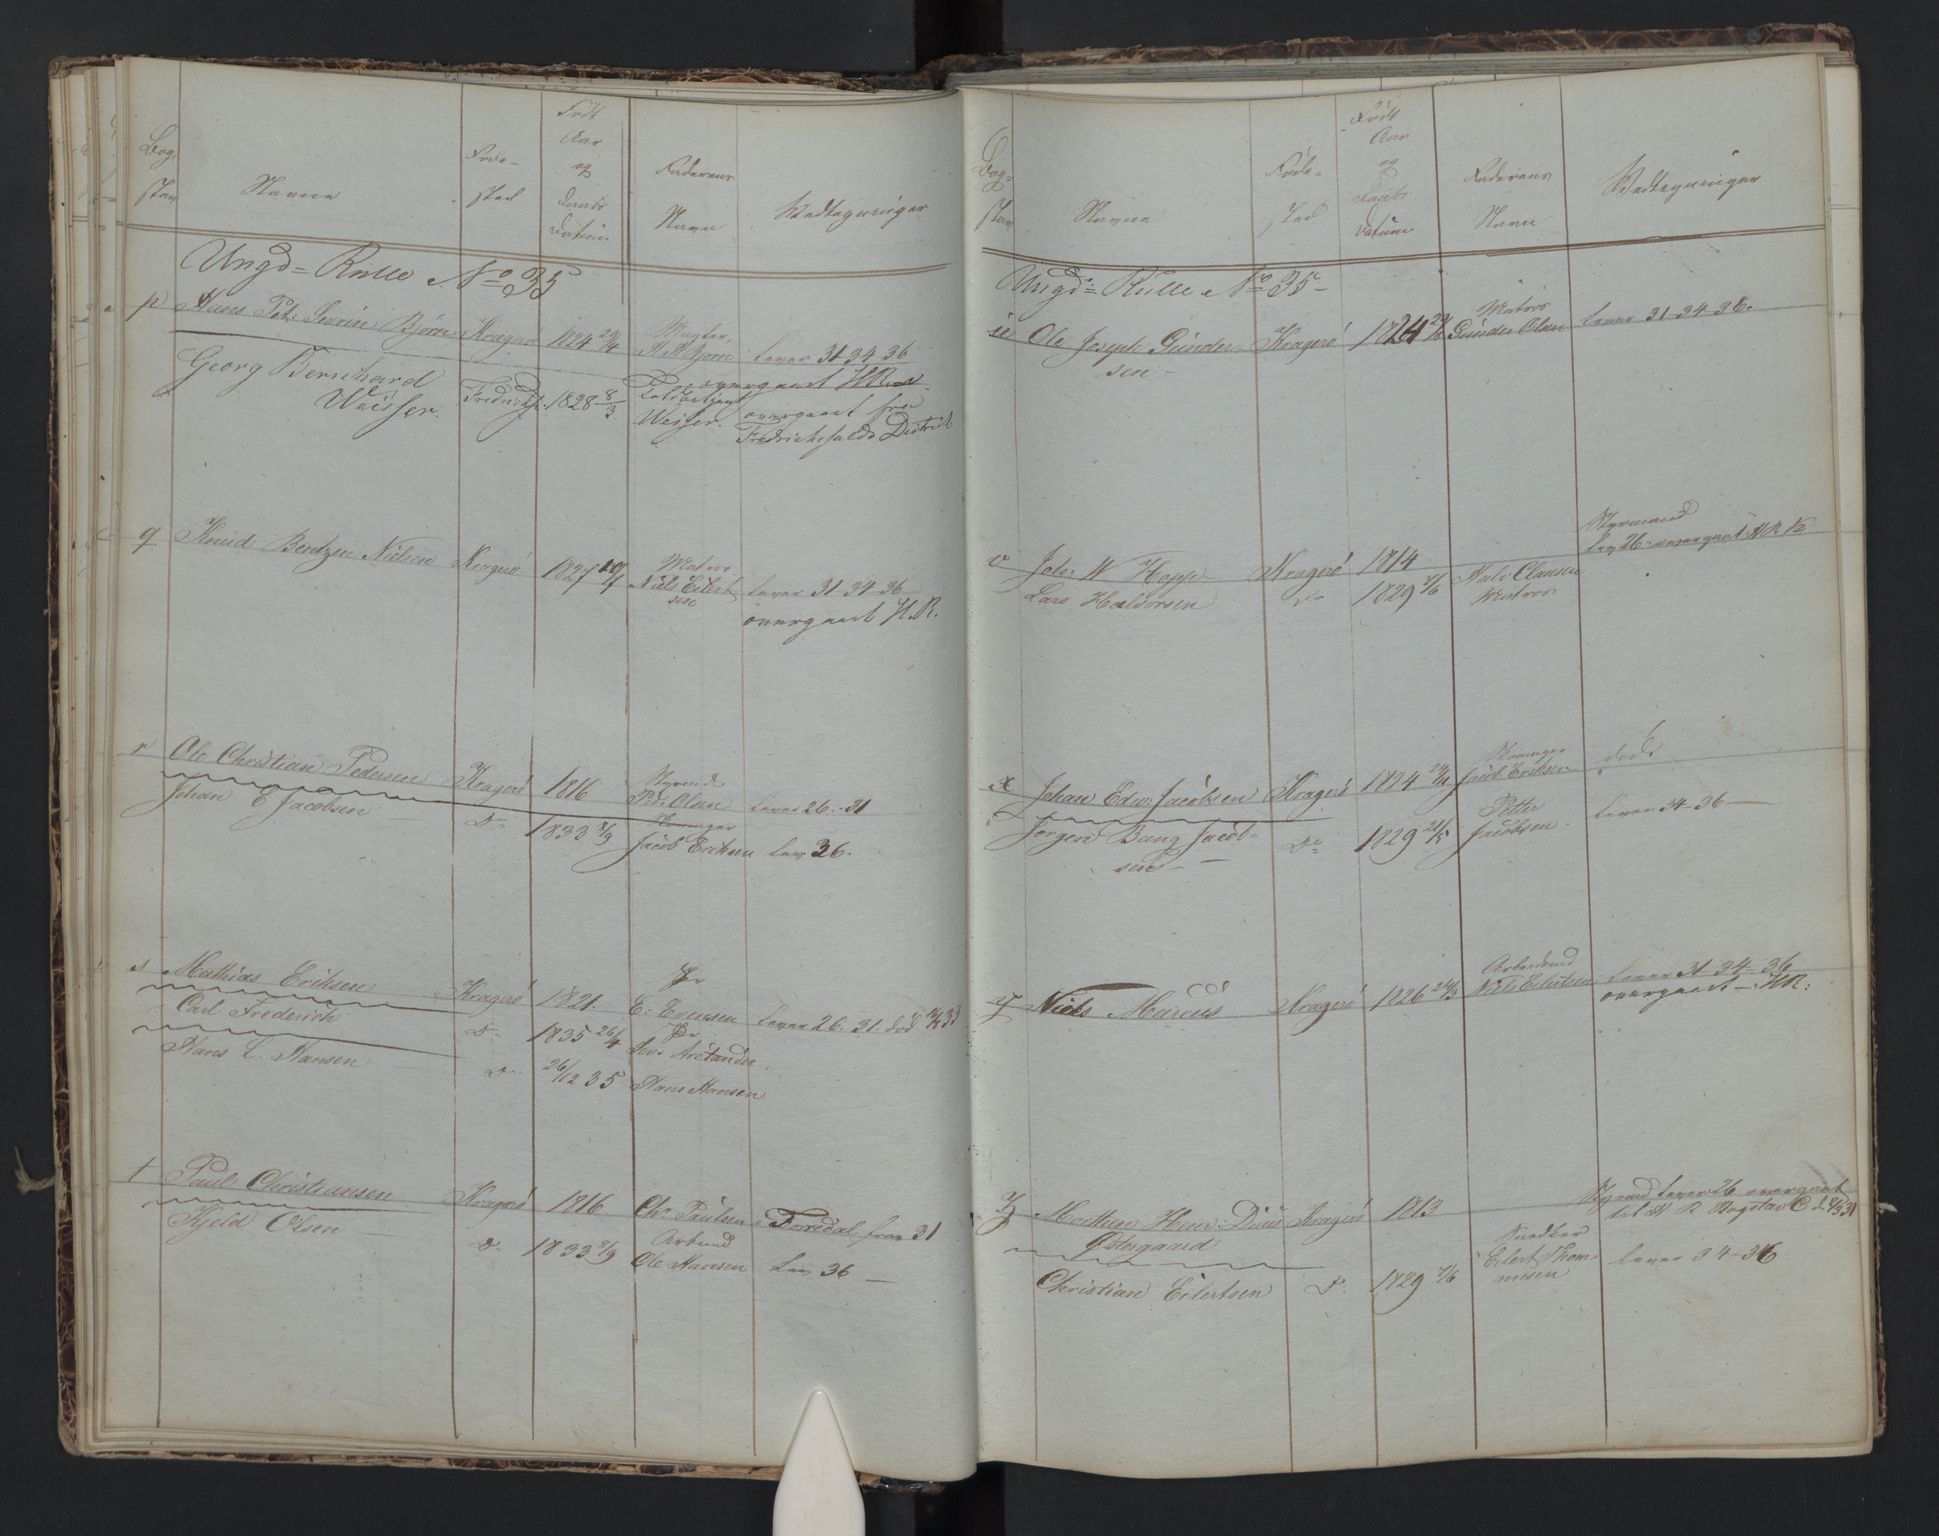 Bog-
stav
Navne
Føde-
sted
Født
Aar
og
Daabs
Datum
Faderens
Navn
Vedtegninger
Ungd= Rulle No 35
p Hans Pet: Severin Bjørn Kragerø 1824 29/4 H M Bjørn lever 31-34-36
overgaaet H.R.
Georg Bernhard
Weisser. 1828 8/3 Toldbetjent
Weisser. overgaaet fra
Fredrichshalds District
q Knud Bentzen Nielsen Kragerø 1827 Matros
Niels Eilert
sen lever 31-34-36
overgaaet H.R.
r Ole Christian Pedersen Kragerø 1816 Styrmd
Ped: Olsen lever 26.-31
Johan E Jacobsen Do 1833 8/9 Jacob Eriksen lev 36.
s Mathias Eriksen Kragerø 1821. E: Evensen lever 26. 31. død 33
Carl Frederich Do 1835 26/4 Jens Arctander
Hans L. Hansen Do 26/12 35 Hans Hansen
t Paul Christiansen Kragerø 1816 Chr. Paulsen Torredal, frav 31
Kjeld Olsen Do 1833 8/9 Arbmd
Ole Hansen lev 36
Bog-
stav
Navne
Føde-
sted
Født
Aar
og
Daabs
Datum
Faderens
Navn
Vedtegninger
Ungd= Rulle No 35
u Ole Joseph Gunder-
sen Kragerø 1824 Matros
Gunder Olsen lever 31-34-36.
v Joh: W Hopp Kragerø 1814 Styrmand
lev 26. overgaat H R
Lars Halvorsen Do 1829 Halv Clausen
Matros
x Johan Edv: Jacobsen Kragerø 1824 Jacob Eriksen død
Jørgen Bang Jacob-
sen Do 1829 21/5 Petter
Jacobsen lever 34-36
y Niels Marcus Kragerø 1826 24/3 Arbeidsmd
Niels Eilertsen lever 31-34-36
overgaaet HR:
z Mathias Henr: Dius
Østergaard Kragerø 1813 Styrmd lever 26 overgaaet
til H R
Christian Eilertsen Do 1829 Snedker
Eilert Thom-
mesen lever 34-36